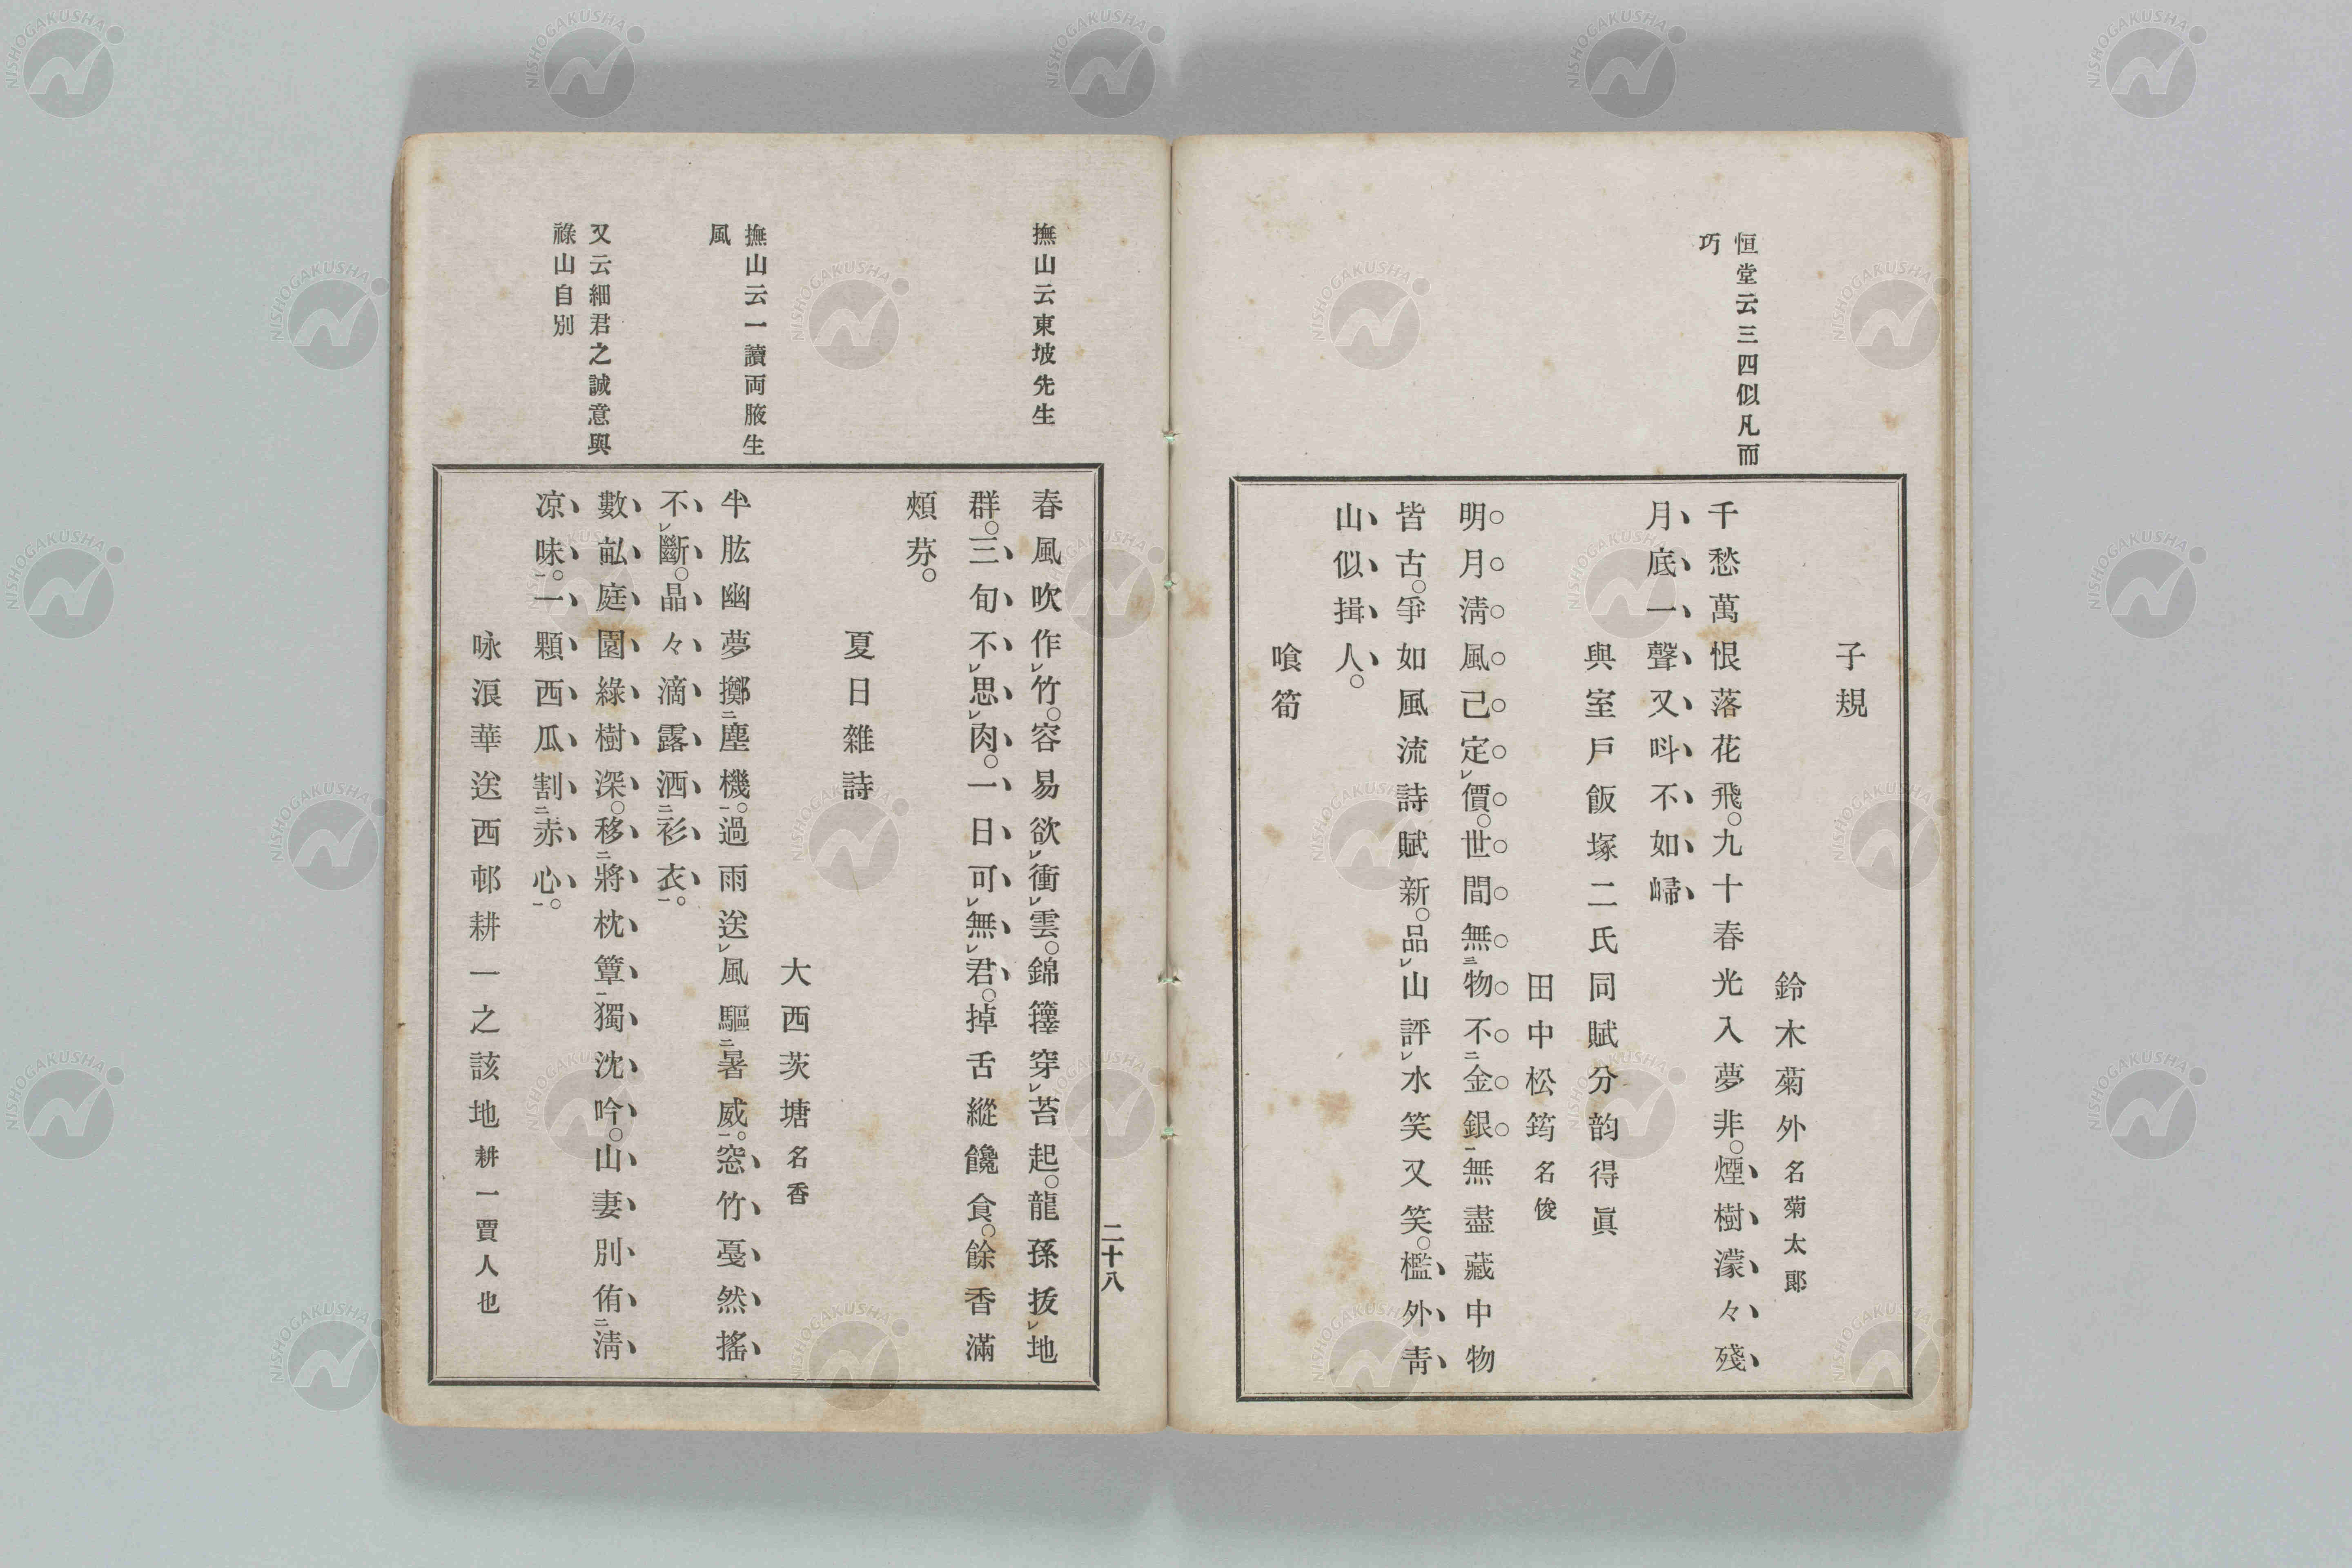 恒堂云三四似凡而
巧
子規
鈴木菊外名菊太郎
千愁萬恨落花飛。九十春光入夢非。煙樹濛々殘
月底一聲又呌不如歸
與室戶飯塚二氏同賦分韵得眞
田中松筠名俊
明月淸風己定レ價。世間無三物不二金銀一無盡藏中物
皆古。爭如風流詩賦新。品レ山評レ水笑又笑。檻外靑
山似揖人。
喰筍
撫山云東坡先生
撫山云一讀両腋生
風
又云細君之誠意與
祿山自別
春風吹作レ竹。容易欲レ衝レ雲。錦籜穿レ苔起。龍孫拔レ地
群。三旬不レ思レ肉。一日可レ無レ君。掉舌縱饞食。餘香滿
頰芬。
夏日雜詩
大西茨塘名香
半肱幽夢擲二塵機一。過雨送レ風驅二暑威一。窓竹戞然搖
不レ斷。晶々滴露洒二衫衣一。
數畝庭園綠樹深。移二將枕簟一獨沈吟。山妻別侑二淸
凉味一。一顆西瓜割二赤心一。
咏浪華送西邨耕一之該地耕一賈人也
二十八
NISHOGAKUSHA